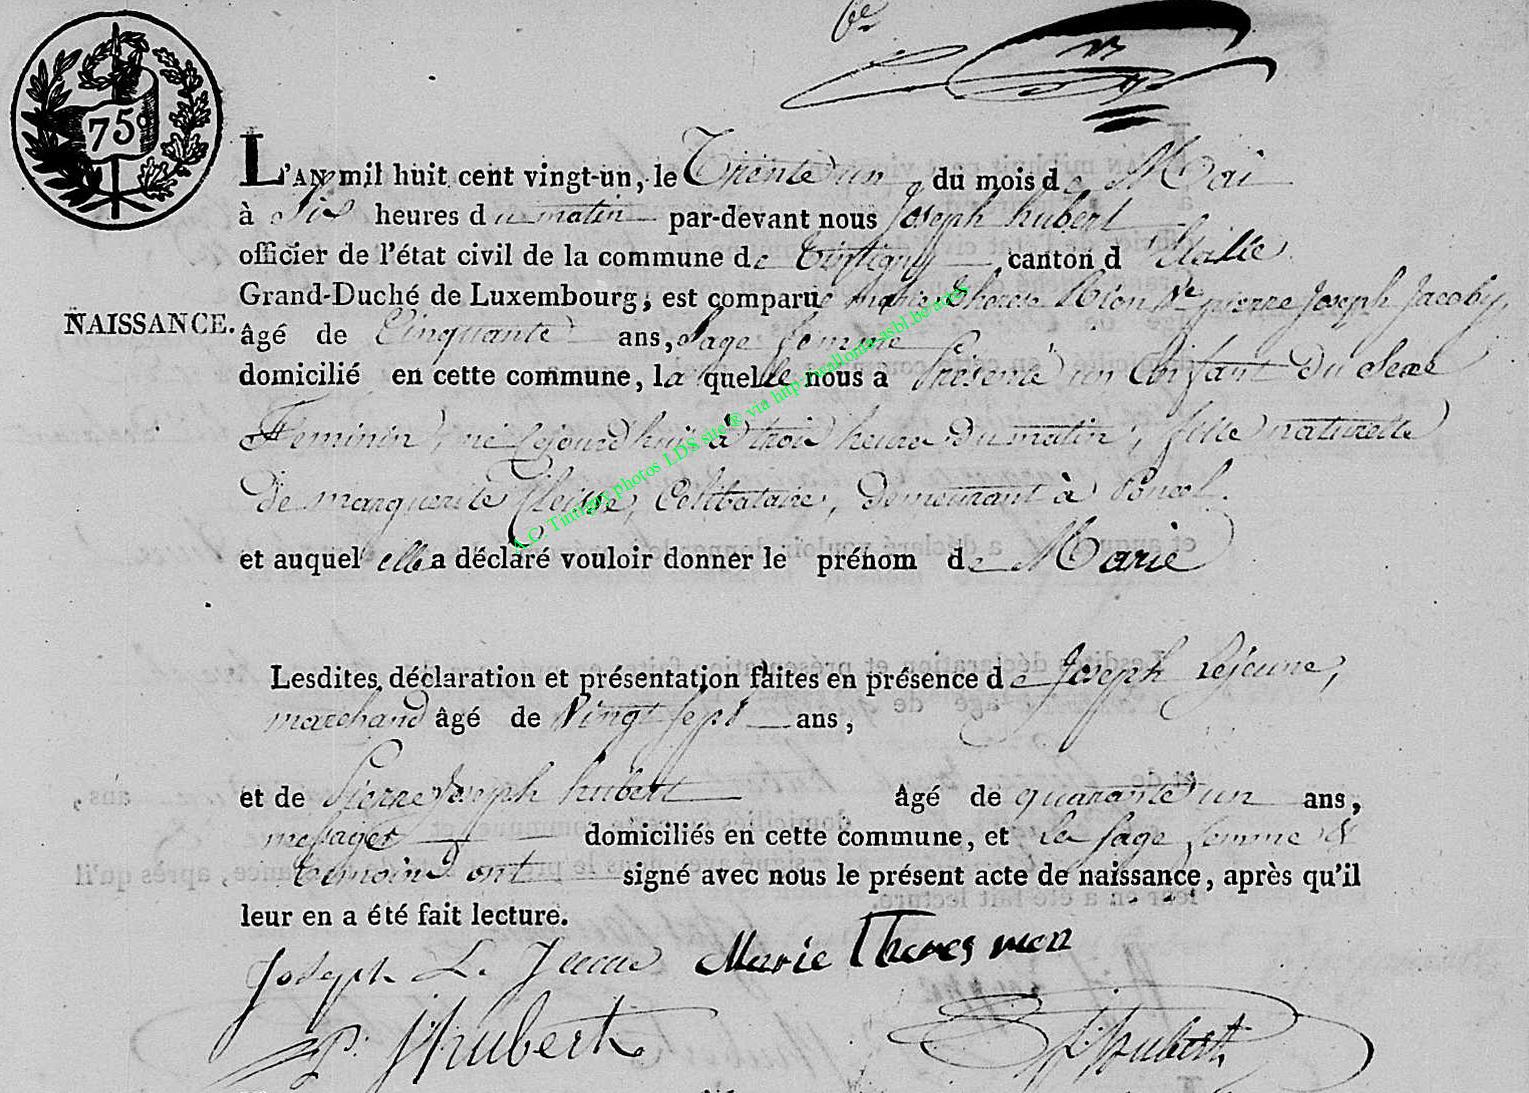 75c
L'AN mil huit cent vingt-un, le Trente un du mois de Mai
à Six heures du matin par-devant nous Joseph hubert
officier de l'état civil de la commune de Tintigny canton d'Etalle
Grand-Duché de Luxembourg; est comparue marie therese Mion Vve pierre Joseph Jacoby,
NAISSANCE.
âgé de Cinquante ans, Sage femme
domicilié en cette commune, la quelle nous a Présenté un Enfant Du Sexe
Feminin, né cejourd'huit à trois heures Du matin, fille naturelle
De marguerite, Celibataire, Demeurant à Poncel.
et auquel elle a déclaré vouloir donner le prénom de Marie
Lesdites déclaration et présentation faites en présence de Joseph Lejeune,
marchand âgé de Vingt sept ans,
et de Pierre Joseph hubert âgé de quarante un ans,
messager domiciliés en cette commune, et la sage femme et
temoins ont signé avec nous le présent acte de naissance, après qu'il
leur en a été fait lecture.
Joseph Le Jeune Marie Theres mion
P. J hubert J hubert
A.C. Tintigny photos LDS site® via http://wallonia-asbl.be/actes